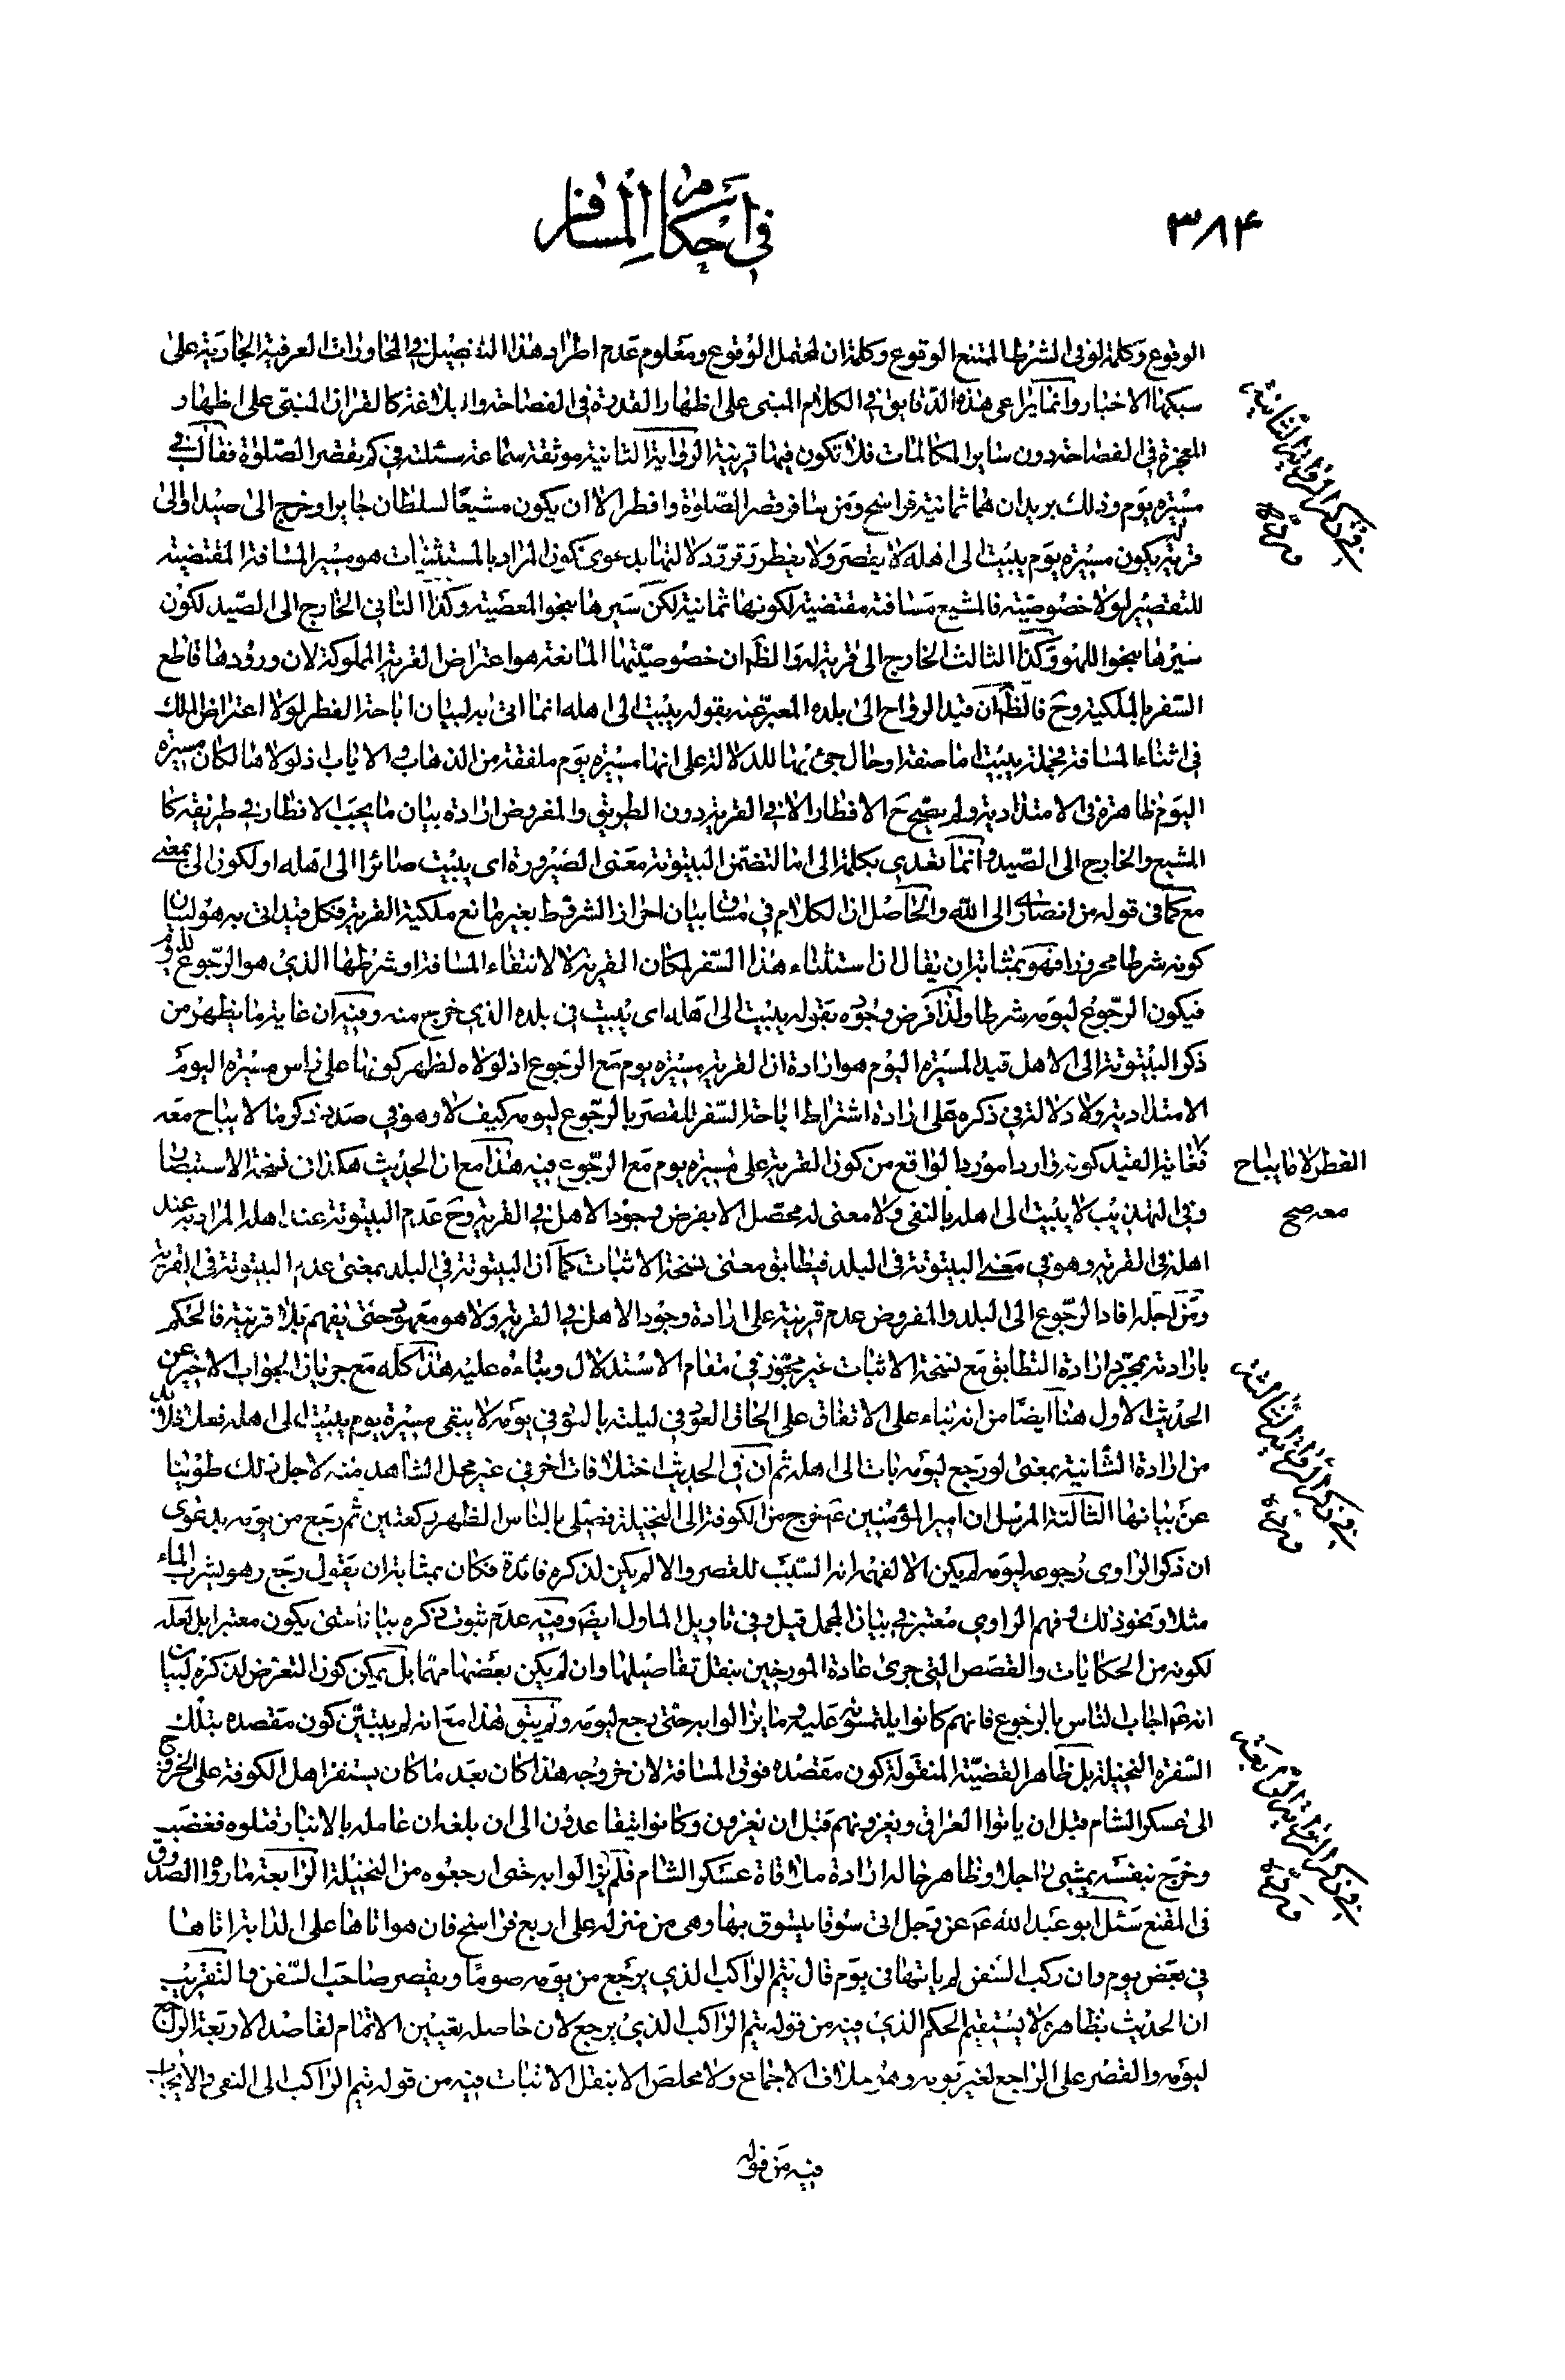 ٣٨۴
في احكام المسافر
الوقوع وكلمة لو في الشرط الممتنع الوقوع وكلمة ان لمحتمل الوقوع ومعلوم عدم اطراد هذا التفصيل في المحاورات العرفية الجارية على
سبكها الاخبار وانما يراعى هذه الدقايق في الكلام المبنى على اظهار القدرة في الفصاحة والبلاغة كالقران المبنى على اظهار
المعجزة في الفصاحة دون ساير المكالمات فلا تكون فيها قرينة الرواية الثانية موثقة سماعة سئلته في كم يقصر الصلوة فقال في
مسيرة يوم وذلك بريدان هما ثمانية فراسخ ومن سافر قصر الصلوة وافطر الا ان يكون مشيعا لسلطان جاير او خرج الى صيد او الى
قرية له يكون مسيرة يوم يبيت الى اهله لا يقصر ولا يفطر وتردد دلالتها بدعوى كون المراد بالمستثنيات هو مسير المسافة المقتضية
للتقصير لولا خصوصيته فالمشيع مسافة مقتضية لكونها ثمانية لكن سيرها بنحو المعصية وكذا الثاني الخارج الى الصيد لكون
سيرها بنحو اللهو وكذا الثالث الخارج الى قرية له والظ ان خصوصيتها المانعة هو اعتراض القرية المملوكة لان ورودها قاطع
السفر بالملكية وح فالظ ان قيد الرواح الى بلده المعبر عنه بقوله يبيت الى اهله انما اتى به لبيان اباحة الفطر لولا اعتراض الملك
في اثناء المسافة فجملة يبيت اما صفة او حال جئ بها للدلالة على انها مسيرة يوم ملفقة من الذهاب والاياب اذ لولاها لكان مسيرة
اليوم ظاهرة في الامتدادية ولم يصح ح الافطار الا في القرية دون الطريق والمفروض ارادة بيان ما يجب الافطار في طريقه كا
المشيع والخارج الى الصيد وانما تعدى بكلمة الى اما لتضمن البيتوتة معنى الصيرورة اى يبيت صائرا الى اهله او لكون الى بمعنى
مع كما في قوله من انصارى الى الله والحاصل ان الكلام في مساق بيان احراز الشروط بغير مانع ملكية القرية فكل قيد اتى به هو لبيان
كونه شرطا محرزا فهو بمثابة ان يقال ان استثناء هذا السفر لمكان القرية لا لانتفاء المسافة او شرطها الذي هو الرجوع لليوم
فيكون الرجوع ليومه شرطا ولذا فرض وجوده بقوله يبيت الى اهله اى يبيت في بلده الذي خرج منه وفيه ان غاية ما يظهر من
ذكر البيتوتة الى الاهل قيدا لمسيرة اليوم هو ارادة ان القرية مسيرة يوم مع الرجوع اذ لولاه لظهر كونها على راس مسيرة اليوم
الامتدادية ولا دلالة في ذكره على ارادة اشتراط اباحة السفر للقصر بالرجوع ليومه كيف لا وهو في صدد ذكر ما لا يباح معه
فغاية القيد كونه واردا مورد الواقع من كون القرية على مسيرة يوم مع الرجوع فيه هذا مع ان الحديث هكذا في نسخة الاستبصار
وفي التهذيب لا يبيت الى اهله بالنفى ولا معنى له محصل الا بفرض وجود الاهل في القرية وح عدم البيتوتة عند اهله المراد به عند
اهله في القرية وهو في معنى البيتوتة في البلد فيطابق معنى نسخة الاثبات كما ان البيتوتة في البلد بمعنى عدم البيتوتة في القرية
ومن اجله افاد الرجوع الى البلد والمفروض عدم قرينة على ارادة وجود الاهل في القرية ولا هو معهود حتى يفهم بلا قرينة فالحكم
بارادته بمجرد ارادة التطابق مع نسخة الاثبات غير مجوز في مقام الاستدلال وبناءه عليه هذا كله مع جريان الجواب الاخير عن
الحديث الاول هنا ايضا من انه بناء على الاتفاق على الحاق العود في ليلته بالعود في يومه لا يبقى مسيرة يوم يبيت الى اهله فعلا فلابد
من ارادة الشأنية بمعنى لو رجع ليومه بات الى اهله ثم ان في الحديث اختلافات اخر في غير محل الشاهد منه لاجل ذلك طوينا
عن بيانها الثالثة المرسل ان امير المؤمنين ع خرج من الكوفة الى النخيلة فصلى بالناس الظهر ركعتين ثم رجع من يومه بدعوى
ان ذكر الراوى رجوعه ليومه لم يكن الا لفهمه انه السبب للقصر والا لم يكن لذكره فائدة فكان بمثابة ان يقول رجع وهو يشرب الماء
مثلا ونحو ذلك وفهم الراوي معتبر في بيان المجمل قيل وفي تاويل الماول ايض وفيه عدم ثبوت ذكره بيانا حتى يكون معتبرا بل لعله
لكونه من الحكايات والقصص التي جرى عادة المورخين بنقل تفاصيلها وان لم يكن بعضها مهما بل يمكن كون التعرض لذكره لبيان
انه ع اجاب الناس بالرجوع فانهم كانوا يلتمسونه عليه وما يزالوا به حتى رجع ليومه ولم يبق هذا مع انه لم يتبين كون مقصده بتلك
السفرة النخيلة بل ظاهر القضية المنقولة كون مقصده فوق المسافة لان خروجه هذا كان بعد ما كان يستنفر اهل الكوفة على الخروج
الى عسكر الشام قبل ان ياتوا العراق ويغزونهم قبل ان يغزون وكانوا يتقاعدون الى ان بلغه ان عامله بالانبار قتلوه فغضب
وخرج بنفسه يمشي راجلا وظاهر حاله ارادة ملاقاة عسكر الشام فلم يزالوا به حتى ارجعوه من النخيلة الرابعة ما رواه الصدوق
في المقنع سئل ابو عبد الله ع عن رجل اتى سوقا يتسوق بها وهي من منزله على اربع فراسخ فان هو اتاها على الدابة اتاها
في بعض يوم وان ركب السفن لم ياتها في يوم قال يتم الراكب الذي يرجع من يومه صوما ويقصر صاحب السفن والتقريب
ان الحديث بظاهره لا يستقيم الحكم الذي فيه من قوله يتم الراكب الذي يرجع لان حاصله تعيين الاتمام لقاصد الاربعة الراجع
ليومه والقصر على الراجع لغير يومه وهو خلاف الاجماع ولا مخلص الا بنقل الاثبات فيه من قوله يتم الراكب الى النفى والايجاب
فيه من قوله
في ذكر الرواية الثانية
الفطر لا ما يباح
معه صح
في ذكر الرواية الثالثة
في ذكر الرواية الرابعة